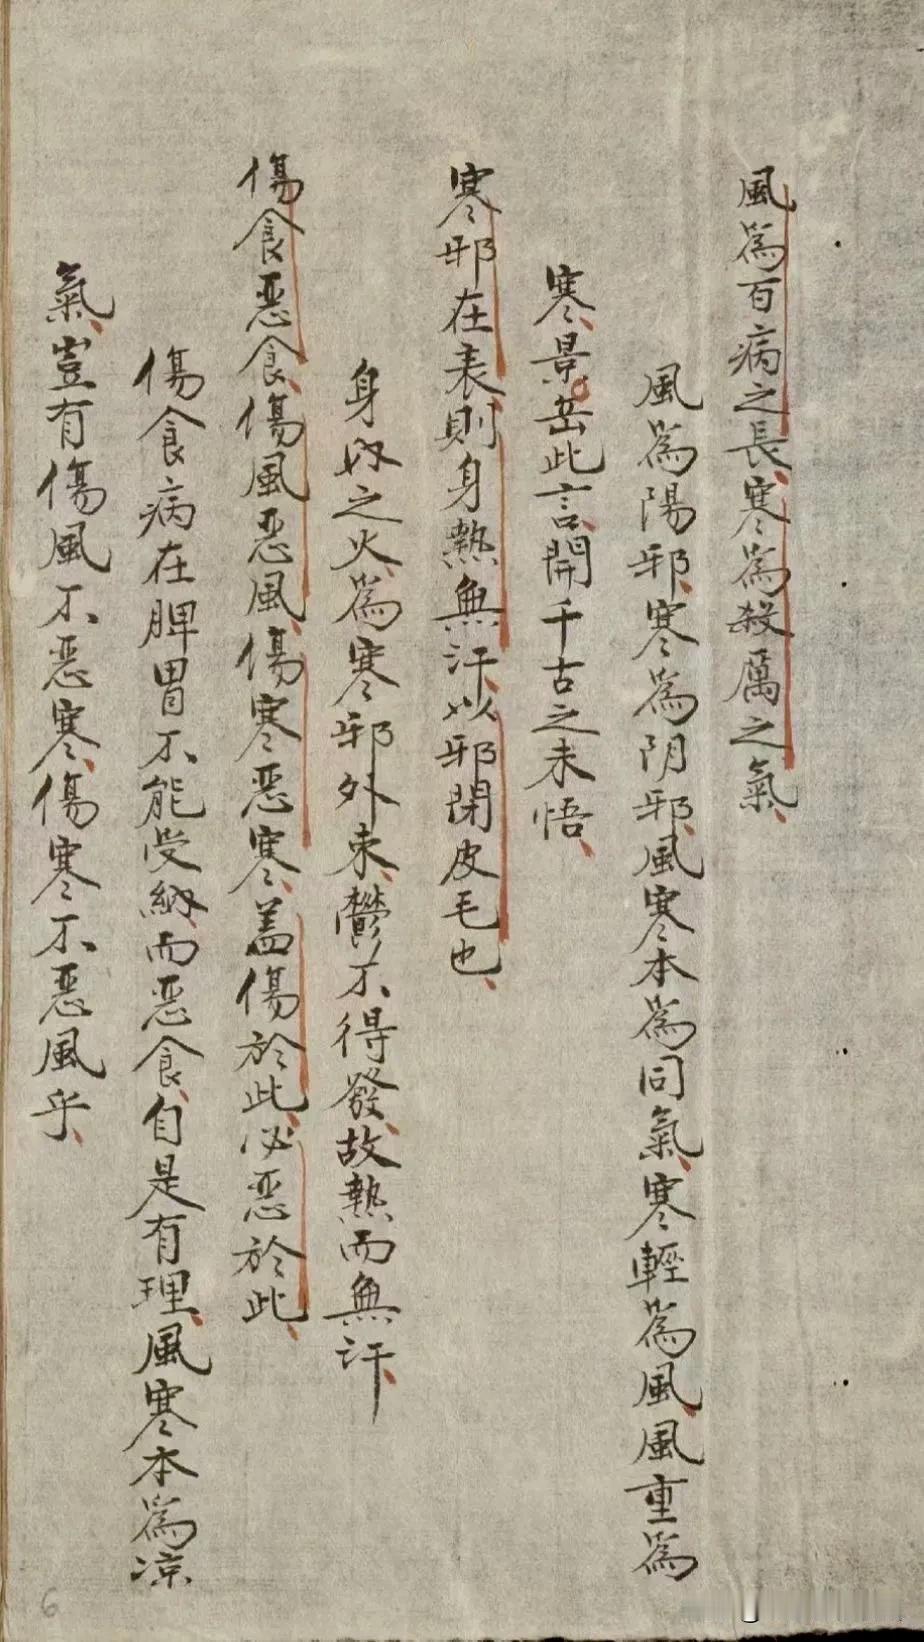 風為百病之長寒為殺厲之氣
風為陽邪寒為阴邪風寒本為同氣寒輕為風風重為
寒景岳此言開千古之未悟
寒邪在表則身熱無汗以邪閉皮毛也
身好之火為寒邪外束鬱不得發故熱而無汗
傷食惡食傷風惡風傷寒惡寒盖傷於此必惡於此
傷食病在脾胃不能受納而惡食自是有理風寒本為凉
氣豈有傷風不惡寒傷寒不惡風乎
6